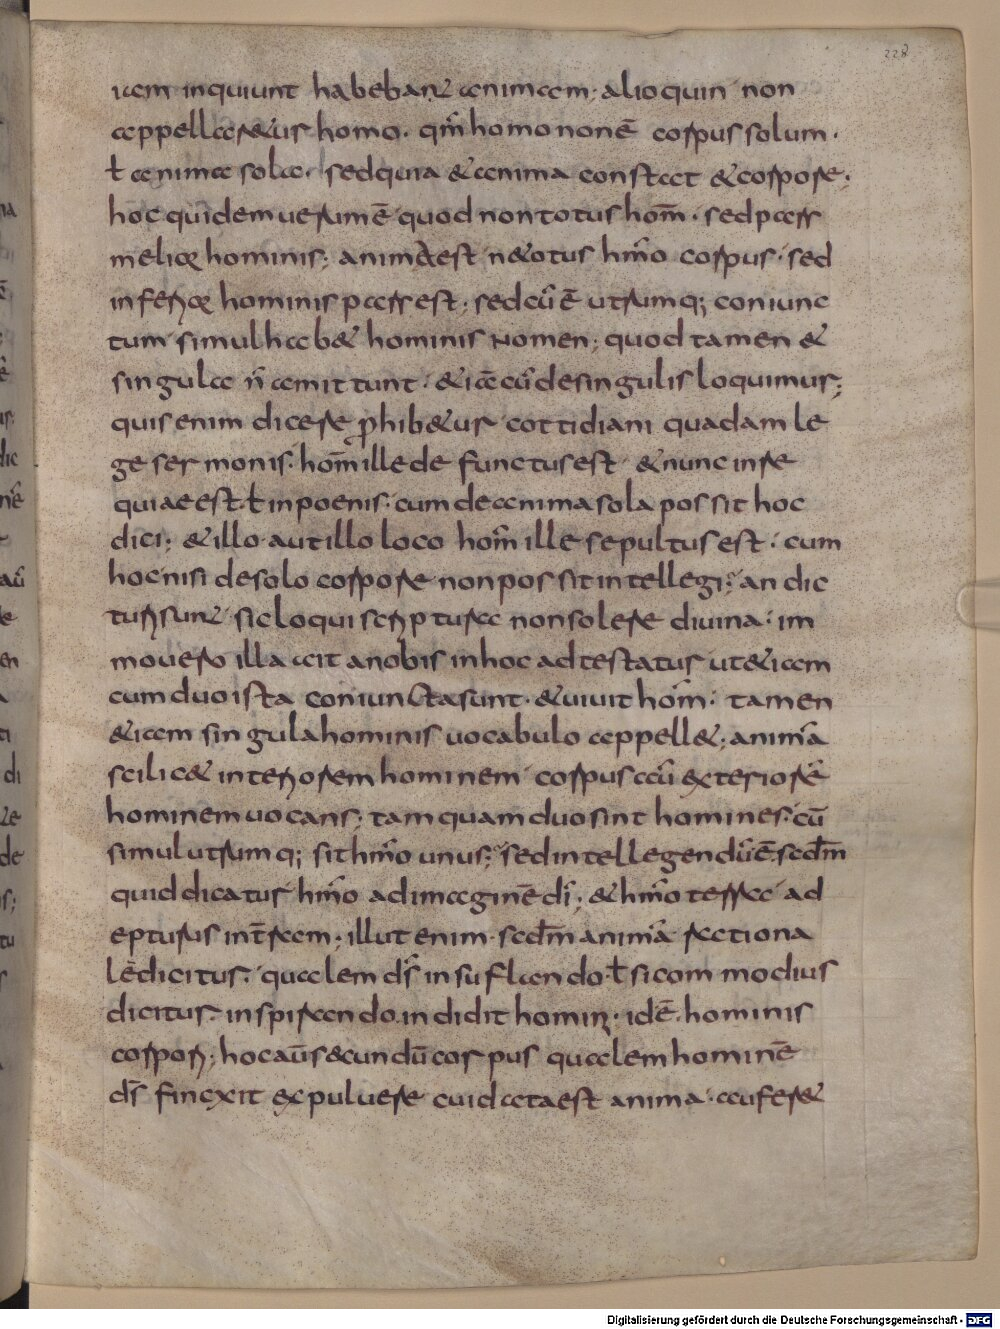 228
uam inquiunt habebant animam; alioquin non
appellaretur homo. qm̄ homo non ē corpus solum.
ł anima sola. sed quia & anima constat & corpore;
hoc quidem uerum ē quod non totus hom̄. sed pars
melior hominis; anima est n& otus hm̄o corpus. sed
inferior hominis pars est; sed cū ē utrumq; coniunc
tum simul hab& hominis nomen; quod tamen &
singula ñ amittunt. & iā cū de singulis loquimur;
quis enim dicere ꝓhib&ur cottidiani quadam le
ge sermonis. hom̄ ille defunctus est & nunc in re
quiae est. ł in poenis. cum de anima sola possit hoc
dici; & illo aut illo loco hom̄ ille sepultus est. cum
hoc nisi de solo corpore non possit intellegi; an dic
turi sunt sic loqui scriptura non solere diuina. im
mo uero illa ait a nobis in hoc adtestatur ut &iam
cum duo ista coniuncta sunt. & uiuit hom̄. tamen
&iam singula hominis uocabulo appell&; animā
scilic& interiorem hominem corpus aū exteriorē
hominem uocans; tamquam duo sint homines. cū
simul utrumq; sit hm̄o unus; sed intellegendū ē. scdm̄
quid dicatus hm̄o ad imaginē dī; & hm̄o terra ad
epturus in t̄ram; illut enim scdm̄ animā rationa
lē dicitus. qualem ds̄ insuflando ł si commodius
dicitur inspirando. indidit homini. idē. hominis
corpori; hoc aūs &cundū corpus qualem hominē
ds̄ finexit ex puluere cui data est anima. auferr&
Digitalisierung gefördert durch die Deutsche Forschungsgemeinschaft - DFG